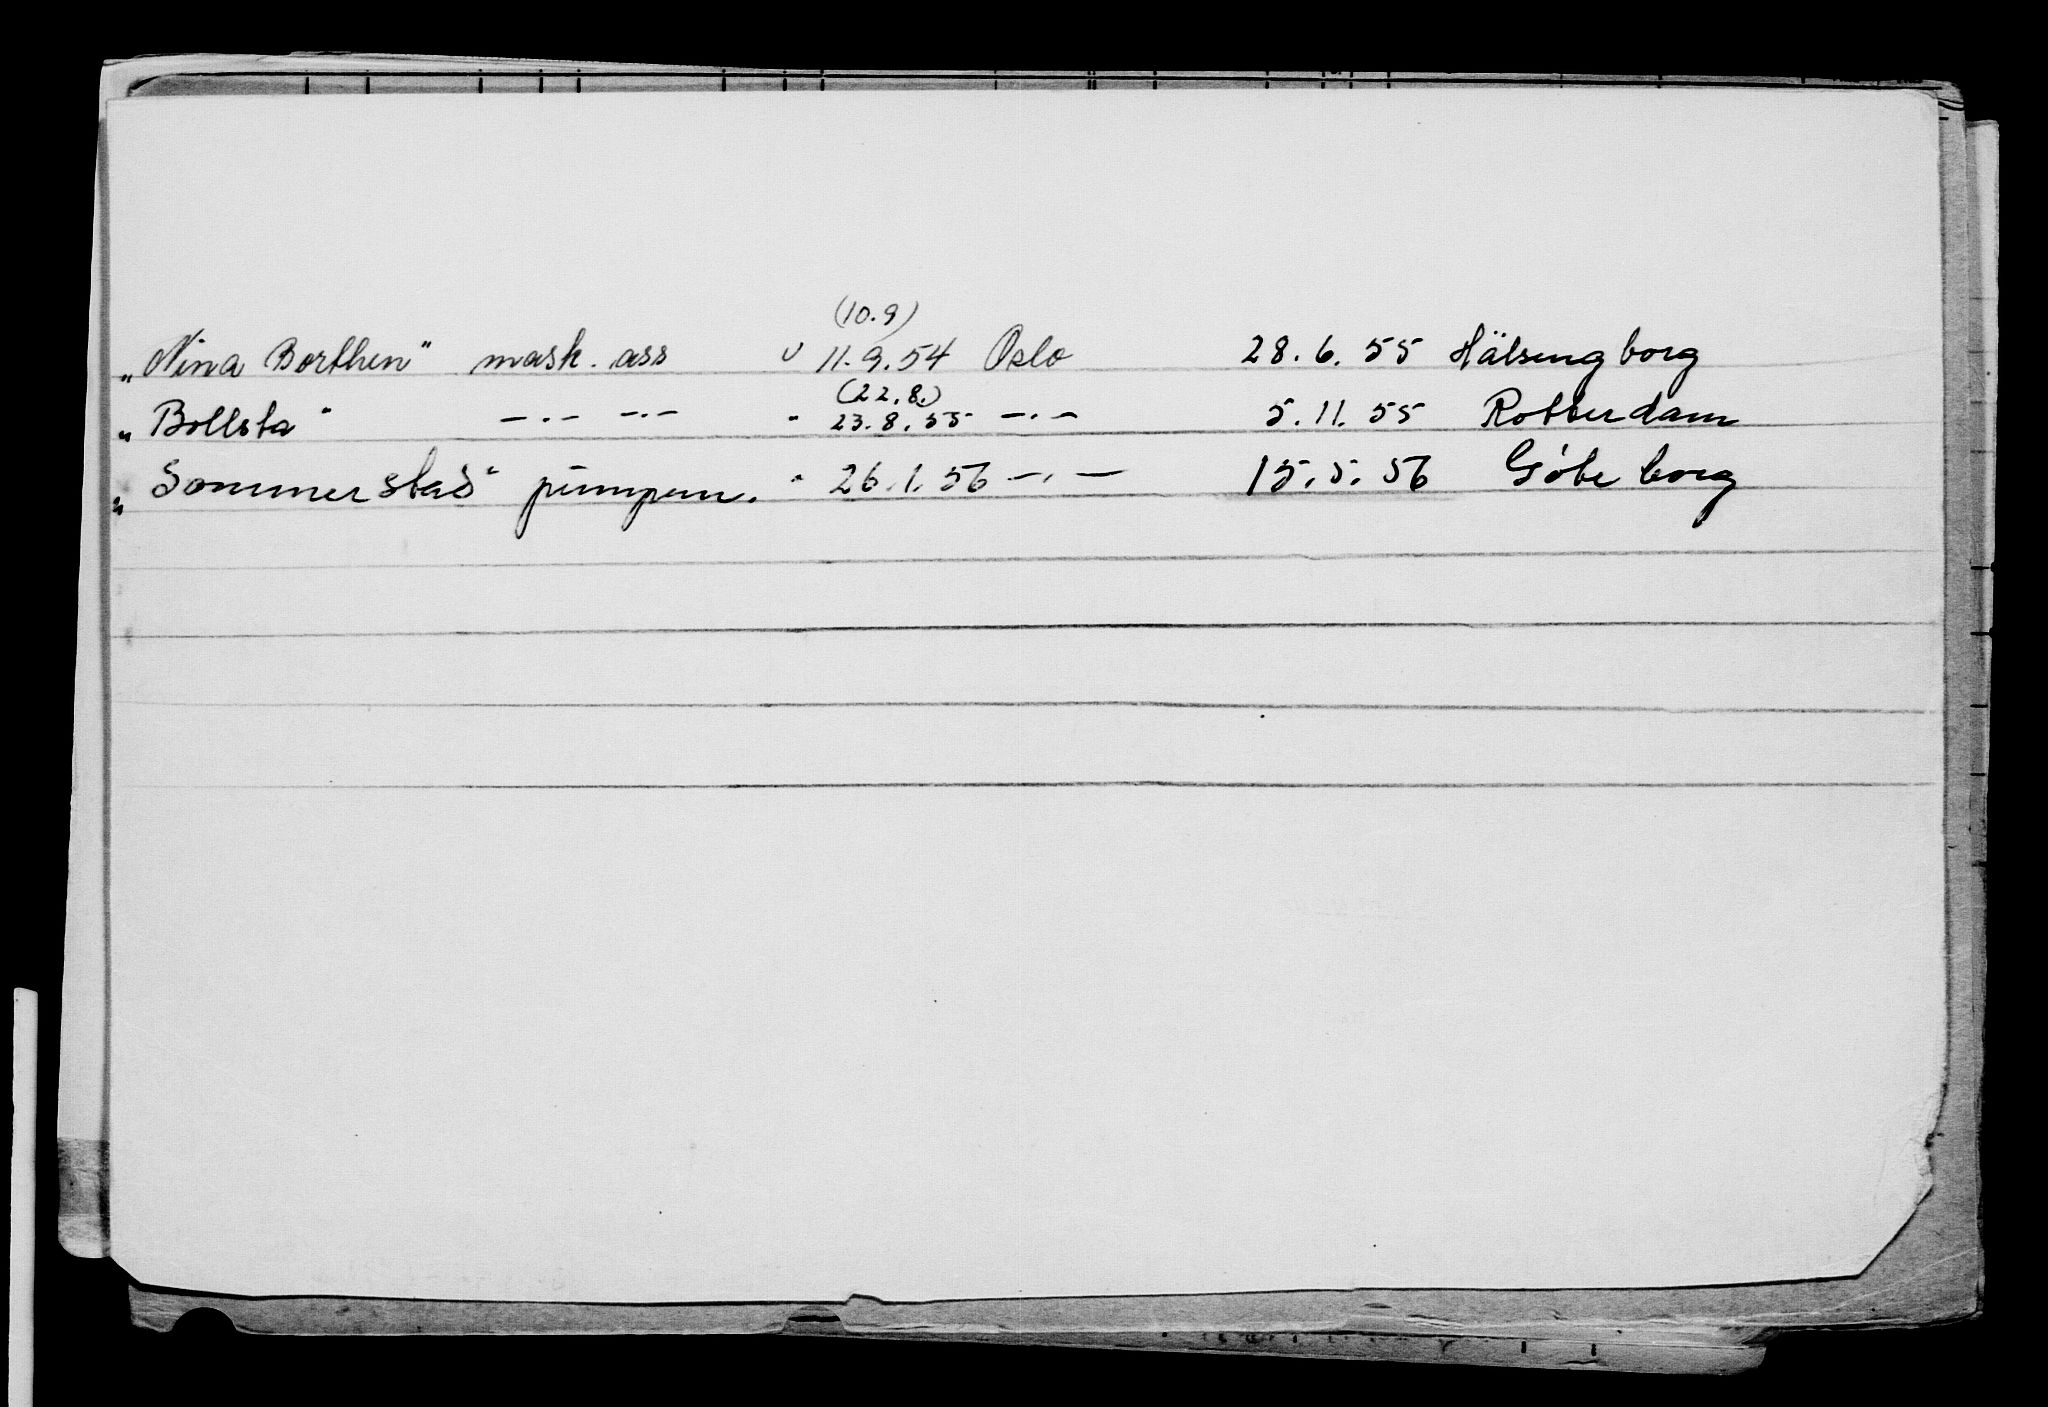 (10.9)
„Nina Borthen" mask. ass u 11.9.54 Oslo 28.6.55 Hälsingborg
(22.8.)
„Bollsta" —·— —·— " 23.8.55 —·— 5.11.55 Rotterdam
„Sommerstad" pumpem. " 26.1.56 —·— 15.5.56 Göteborg